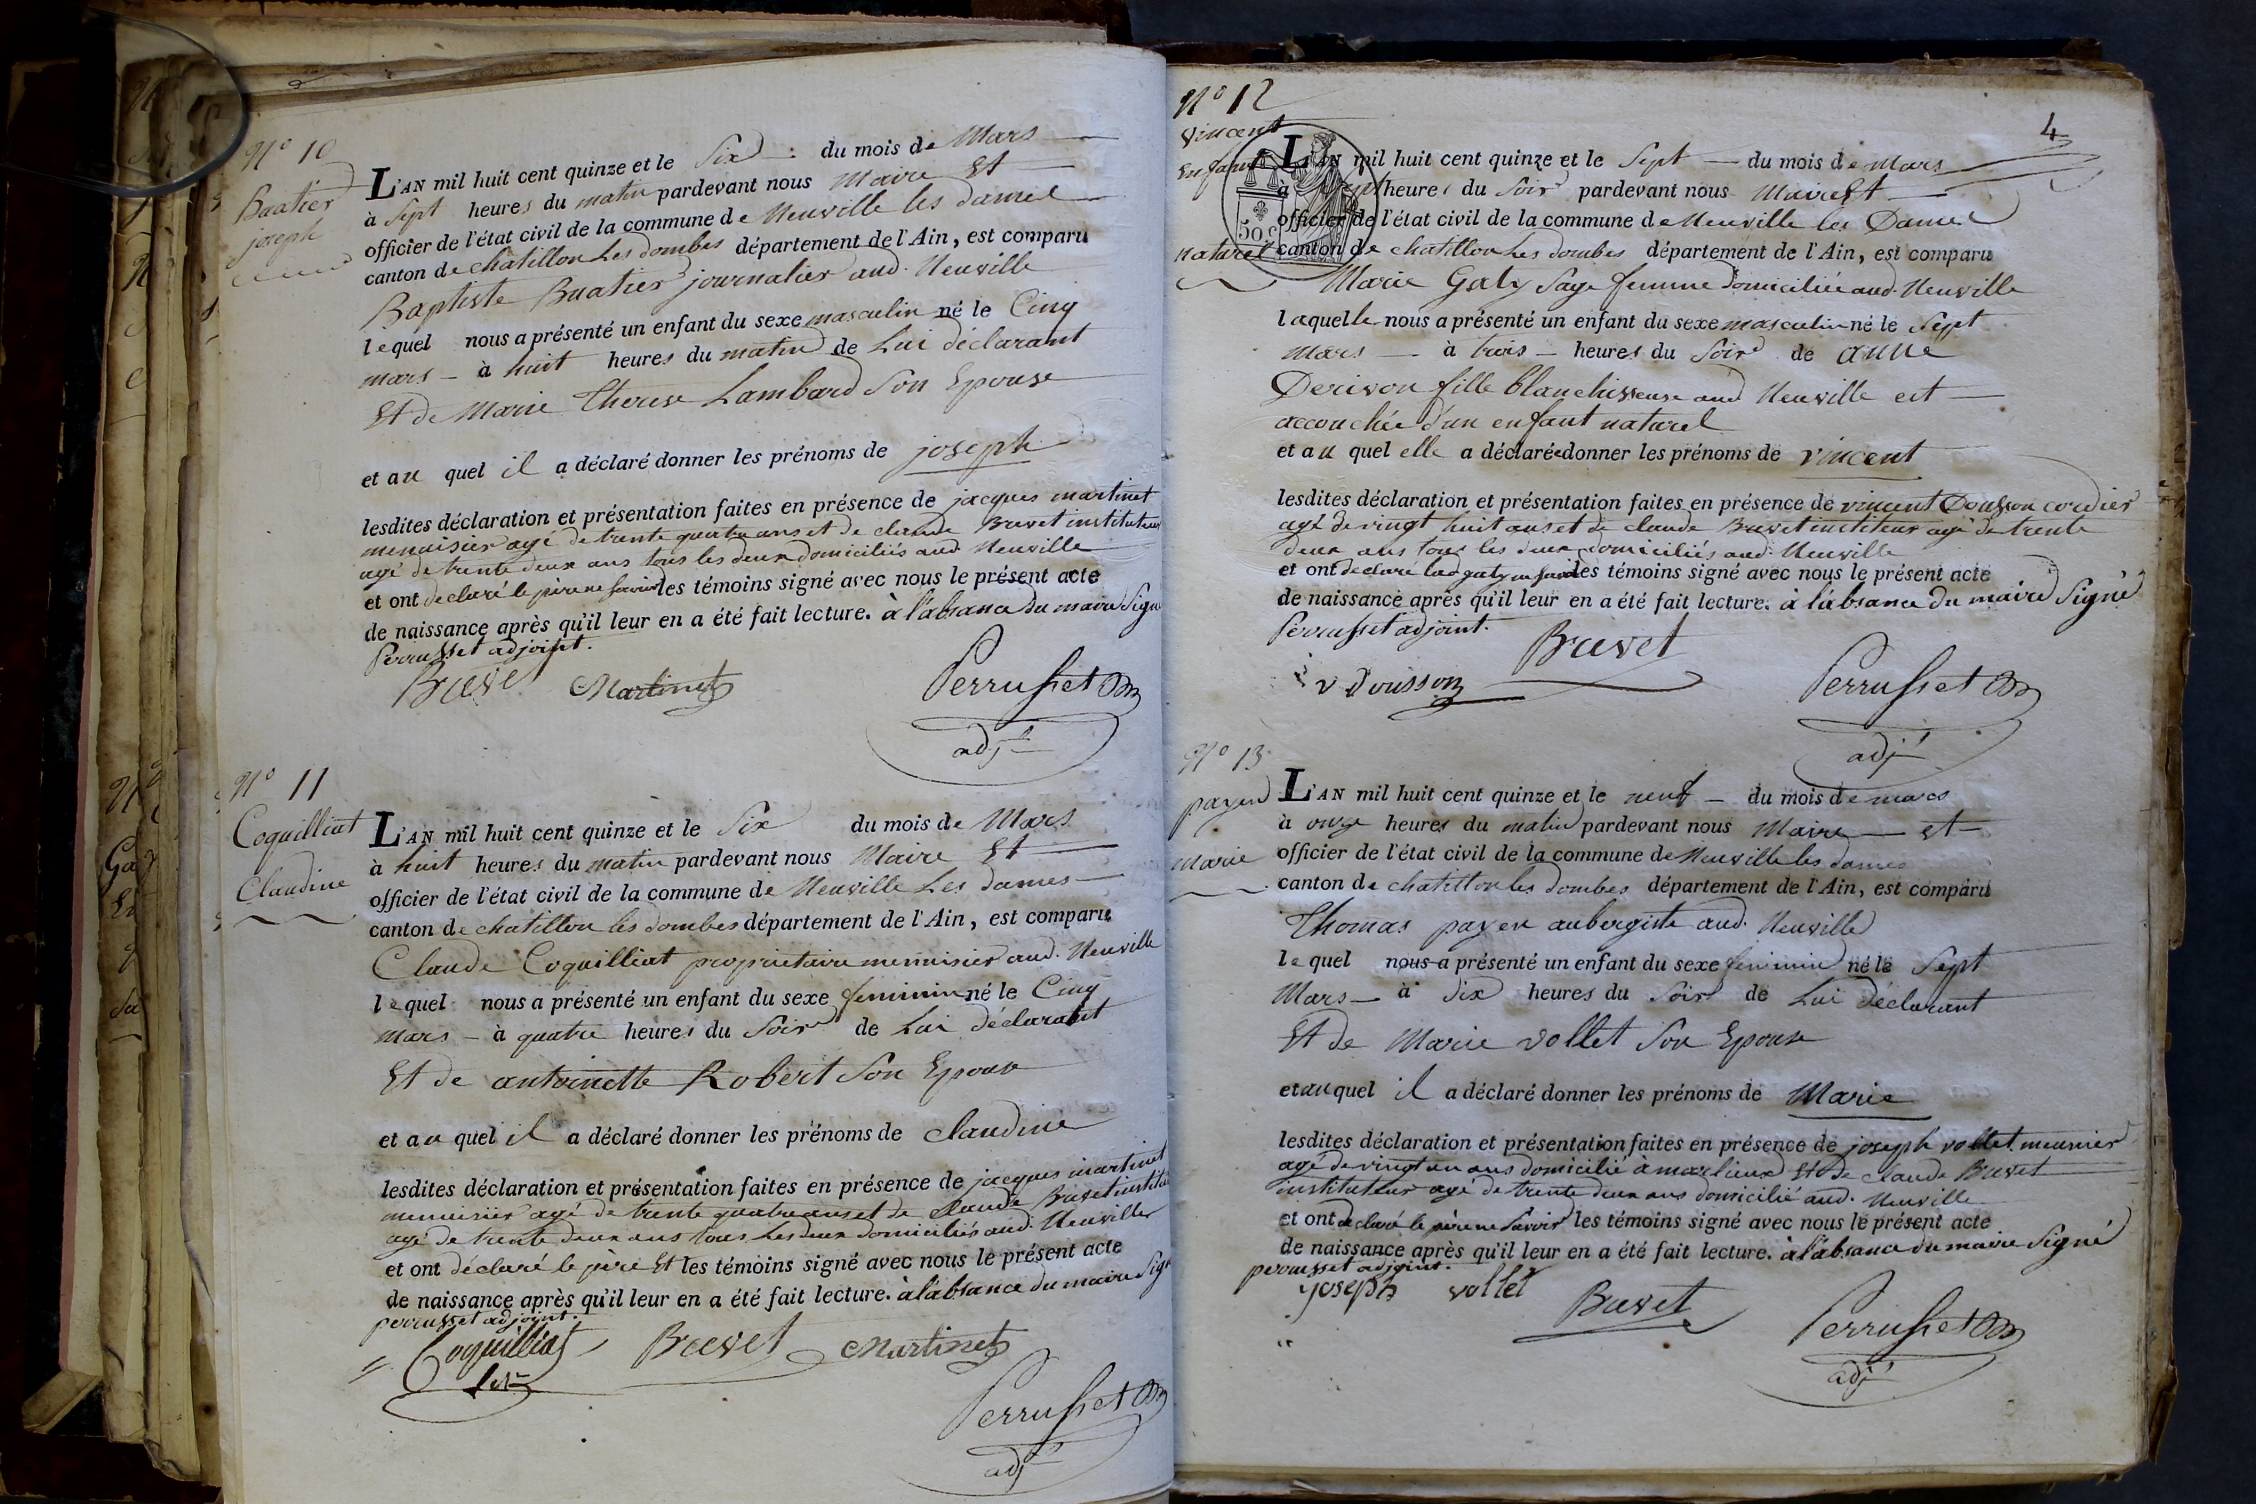 N° 10
Buatier
joseph
L'AN mil huit cent quinze et le Six du mois de Mars
à Sept heures du matin pardevant nous Maire Et
officier de l'état civil de la commune de Neuville les dames
canton de chatillon Les dombes département de l'Ain, est comparu
Baptiste Buatier journalier aud. Neuville
lequel nous a présenté un enfant du sexe masculin né le Cinq
mars à huit heures du matin de Lui déclarant
Et de Marie Therese Lambard Son Epouse
et au quel il a déclaré donner les prénoms de joseph
lesdites déclaration et présentation faites en présence de jacques martinet
menuisier agé de trente quatre ans et de claude Buvet instituteur
agé de trente deux ans tous les deux domiciliés aud. Neuville
et ont declaré le père ne Savoir les témoins signé avec nous le présent acte
de naissance après qu'il leur en a été fait lecture. à l'absance du maire Signé
Perrusset adjoint.
Buvet Martinet Perrusset
adjt
N° 11
Coquilliat
Claudine
L'AN mil huit cent quinze et le Six du mois de Mars
à huit heures du matin pardevant nous Maire Et
officier de l'état civil de la commune de Neuville Les dames
canton de chatillon les dombes département de l'Ain, est comparu
Claude Coquilliat proprietaire menuisier aud. Neuville
lequel nous a présenté un enfant du sexe feminin né le Cinq
mars à quatre heures du Soir de Lui déclarant
Et de antoinette Robert Son Epouse
et au quel il a déclaré donner les prénoms de claudine
lesdites déclaration et présentation faites en présence de jacques martinet
menuisier agé de trente quatre ans et de Claude Buvet institu
agé de trente deux ans tous Les deux domiciliés aud. Neuville
et ont déclaré le père Et les témoins signé avec nous le présent acte
de naissance après qu'il leur en a été fait lecture. à l'absance du maire Sign
perrusset adjoint.
Coquilliat Buvet Martinet
Perrusset
adjt
4
N° 12
Vincent
Enfant
naturel
50 c
L'AN mil huit cent quinze et le Sept du mois de Mars
à heures du Soir pardevant nous Maire Et
officier de l'état civil de la commune de Neuville les Dames
canton de chatillon Les dombes département de l'Ain, est comparu
Marie Gaty Sage femme domiciliée aud. Neuville
laquelle nous a présenté un enfant du sexe masculin né le Sept
Mars à trois heures du Soir de anne
Derivon fille blanchisseuse aud Neuville est
accouchée d'un enfant naturel
et au quel elle a déclarée donner les prénoms de vincent
lesdites déclaration et présentation faites en présence de vincent Dousson cordier
agé de vingt huit ans et de claude Buvet instituteur agé de trente
deux ans tous les deux domiciliés aud. Neuville
et ont declaré lad gaty ne savoir les témoins signé avec nous le présent acte
de naissance après qu'il leur en a été fait lecture. à l'absance du maire Signé
Perrusset adjoint.
v Dousson Buvet Perrusset
adjt
N° 13
payen
Marie
L'AN mil huit cent quinze et le neuf du mois de mars
à onze heures du matin pardevant nous Maire et
officier de l'état civil de la commune de Neuville les dames
canton de chatillon les dombes département de l'Ain, est comparu
Thomas payen aubergiste aud. Neuville
lequel nous a présenté un enfant du sexe feminin né le Sept
Mars à dix heures du Soir de Lui déclarant
Et de Marie vollet Son Epouse
et au quel il a déclaré donner les prénoms de Marie
lesdites déclaration et présentation faites en présence de joseph vollet meunier
agé de vingt un ans domicilié à marlieux Et de claude Buvet
instituteur agé de trente deux ans domicilié aud. Neuville
et ont declaré le père ne Savoir les témoins signé avec nous le présent acte
de naissance après qu'il leur en a été fait lecture. à l'absance du maire Signé
perrusset adjoint.
joseph vollet Buvet Perrusset
adjt